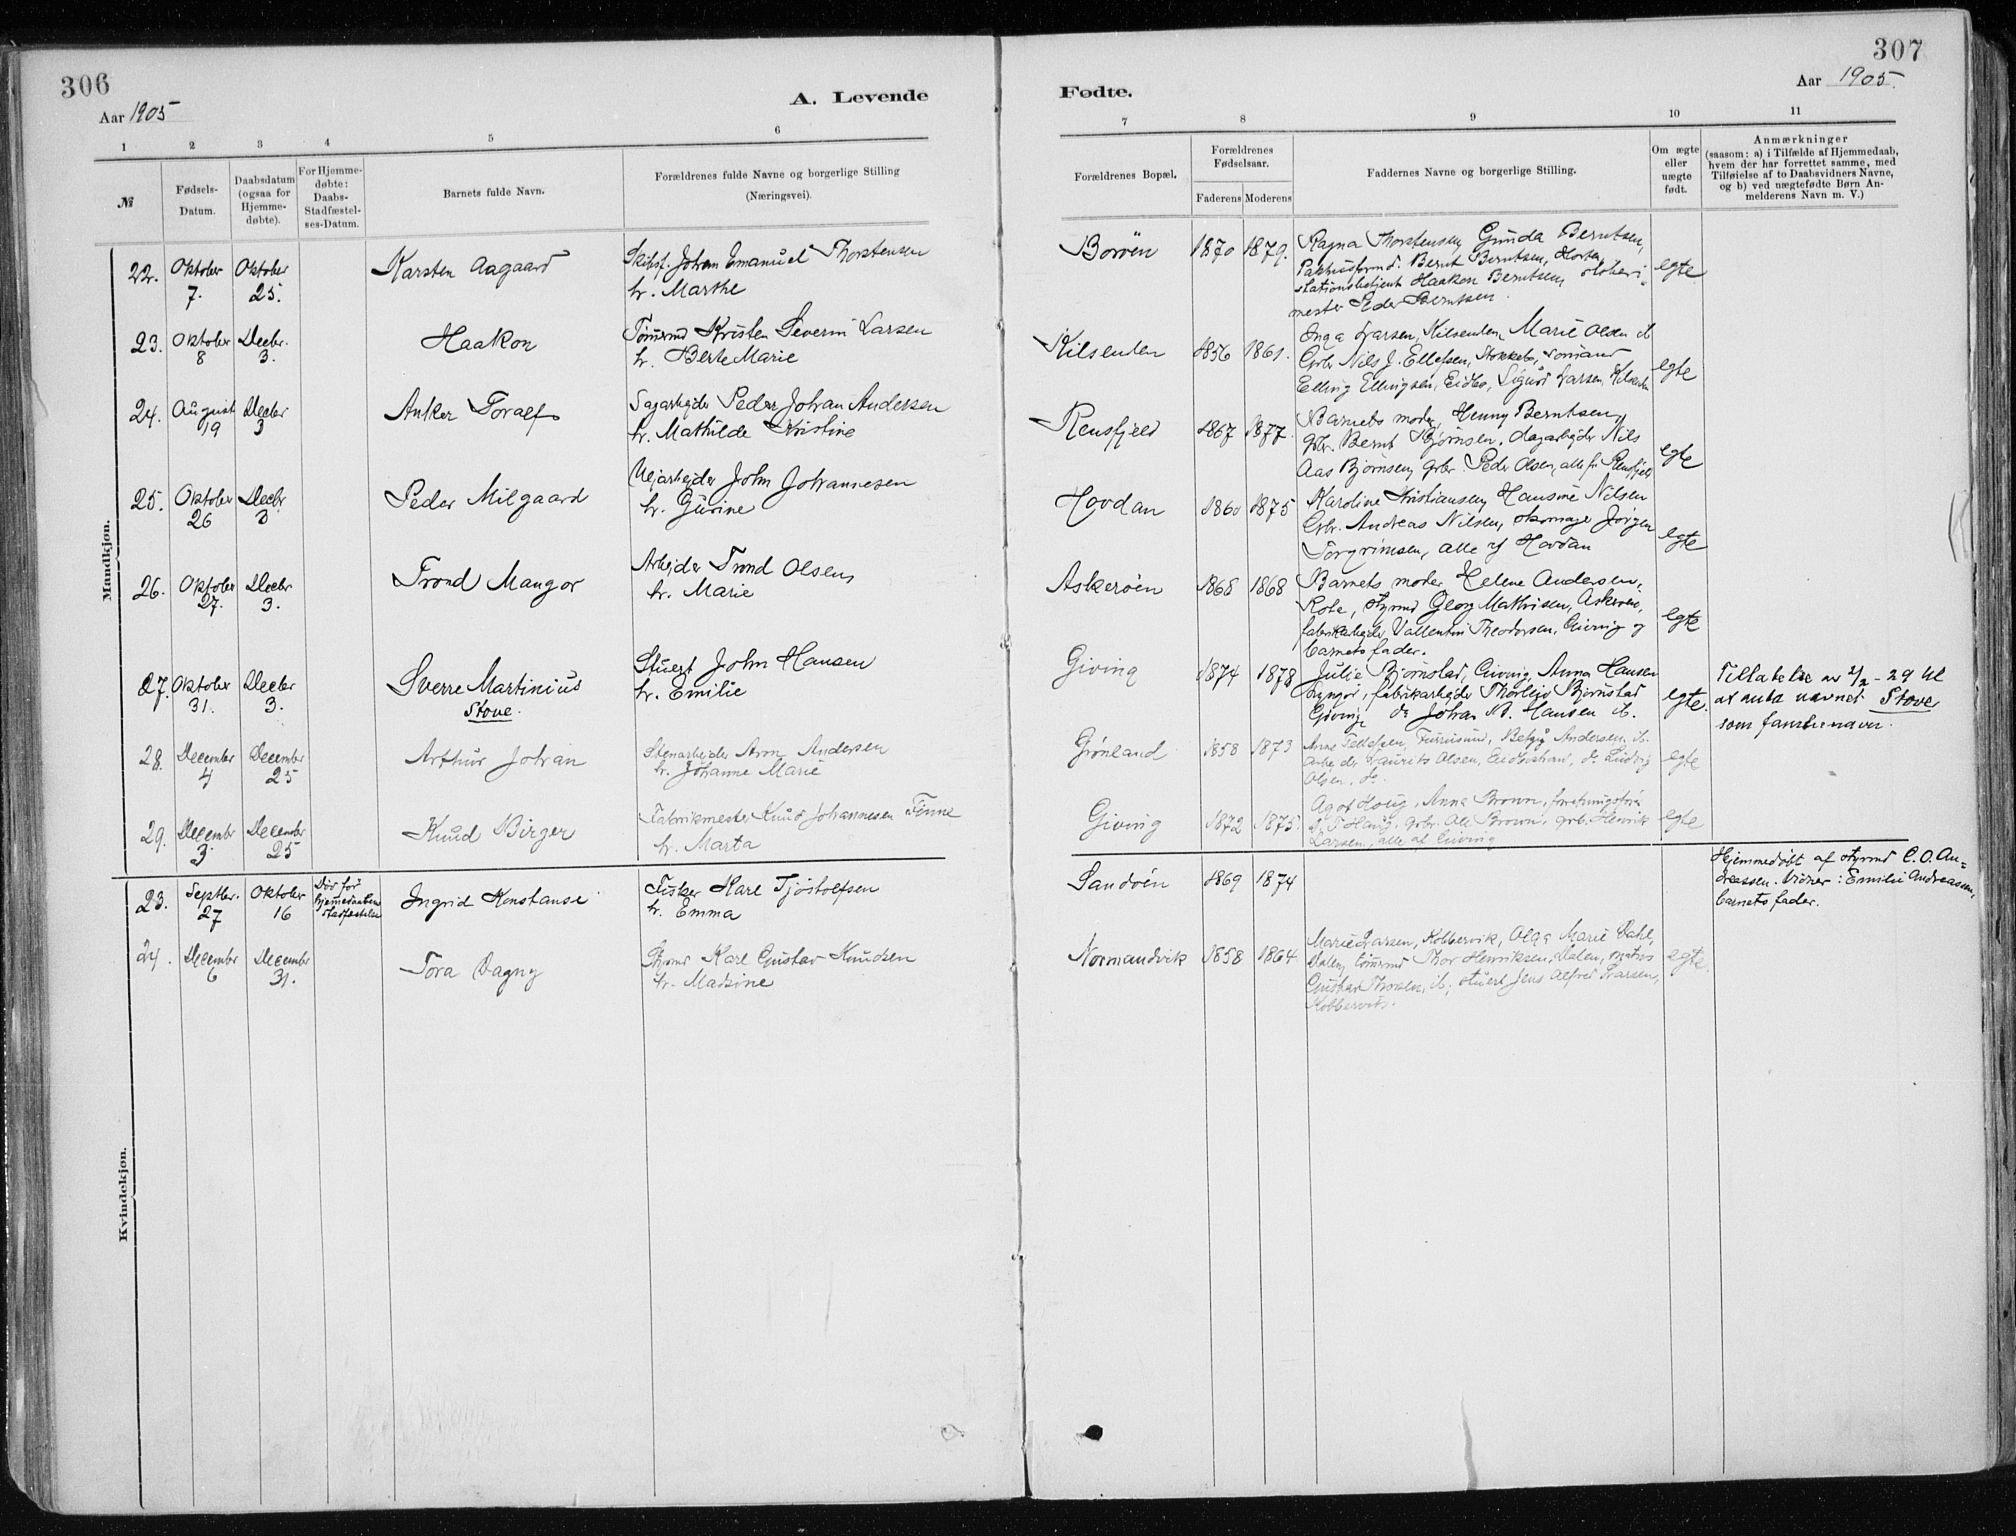 306
Aar 1905
A. Levende
1
2
3
4
5
6
№
Fødsels-
Datum.
Daabsdatum
(ogsaa for
Hjemme-
døbte).
For Hjemme-
døbte:
Daabs-
Stadfæstel-
ses-Datum.
Barnets fulde Navn.
Forældrenes fulde Navne og borgerlige Stilling
(Næringsvei).
Mandkjøn.
22.
Oktober
7.
Oktober
25.
Karsten Aagaard
Johan Emanuel Thorstensen
h. Marthe
23.
Oktober
8
Decbr.
3.
Haakon
Tømrmd Kristen Severin Larsen
h. Berte Marie
24.
August
19
Decbr
3
Anker Toralf
Sagarbejder Peder Johan Andersen
h. Mathilde Kristine
25.
Oktober
26
Decbr
3
Peder Milgaard
Vejarbejder John Johannesen
h. Gurine
26.
Oktober
27.
Decbr
3.
Trond Mangor
Arbejder Trond Olsen
h. Marie
27.
Oktober
31.
Decbr
3.
Sverre Martinius
Stove.
Stuert John Hansen
h. Emilie
28.
December
4
December
25
Arthur Johan
Stenarbejder Aron Andersen
h. Johanne Marie
29.
Decembr
3.
December
25
Knud Birger
Fabrikmester Knud Johannesen Finne
h. Marta
Kvindekjøn.
23.
Septbr.
27
Oktober
16
Død før
hjemedaabens
stadfæstelse
Ingrid Konstanse
Fisker Karl Tjøstolfsen
h. Emma
24.
Decembr
6
December
31.
Tora Dagny
Styrmd Karl Gustav Knudsen
h. Madsine
307
Aar 1905.
Fødte.
7
8
9
10
11
Forældrenes Bopæl.
Forældrenes
Fødselsaar.
Faderens
Moderens
Faddernes Navne og borgerlige Stilling.
Om ægte
eller
uægte
født.
Anmærkninger
(saasom: a) i Tilfælde af Hjemmedaab,
hvem der har forrettet samme, med
Tilføielse af to Daabsvidners Navne,
og b) ved uægtefødte Børn An-
melderens Navn m. V.)
Borøen
1870
1879.
Ragna Thorstensen, Gunda Berntsen,
Pakhusformd. Bernt Berntsen, Horten,
stationsbetjent Haakon Berntsen,
mester Peder Berntsen.
egte
Kilsenden
1856
1861.
Inga Larsen, Kilsenden, Marie Olsen ib
Grbr Nils J. Ellefsen, Stokkebo, sømand
Elling Ellingsen, Eidbo, Sigurd Larsen, Kilsenden
egte
Rensfjeld
1867
1877.
Barnets moder, Henny Berntsen,
grbr. Bernt Bjørnsen, dagarbejder Nils
Aas Bjørnsen, grbr. Peder Olsen, alle fr Rensfjeld
egte
Hovdan
1860
1875
Karoline Kristiansen, Hansine Nilsen
Grbr. Andreas Nilsen, skomager Jørgen
Torgrimsen, alle af Hovdan
egte
Askerøen
1868
1868
Barnets moder, Helene Andersen,
styrmd Georg Mathisen, Askerøen,
fabrikarbejder Vallentin Theodorsen, Giving og
barnets fader.
egte
Giving
1874
1878
Julie Bjørnstad, Giving, Anna Hansen
Lyngør, fabrikarbejder Thorleiv Bjørnstad
Giving, do Johan M. Hansen ib.
egte.
Tilladelse av 2/2 - 29 til
at anta navnet Stove
som familienavn.
Grønland
1858
1873
Anne Tellefsen, Furusund, Betzy Andersen ib.
Laurits Olsen, do Ludvig
Olsen, do.
egte
Giving
1872
1875.
Agot Houg, Anna Brown, forretningsfører
T. Haug, grbr. Ole Brown, grb. Henrik
Larsen, alle af Giving
egte
Sandøen
1869
1874
Hjemmedøbt af styrmd C. O. An-
dreassen. Vidner: Emilie Andreassen,
barnets fader.
Normandvik
1858
1864
Marie Larsen, Kobbervik, Olga Marie Dahl,
Dalen, tømrmd Thor Henriksen, Dalen, matros
Gustav Thorsen, ib; stuert Jens Alfred Larsen,
Kobbervik.
egte.